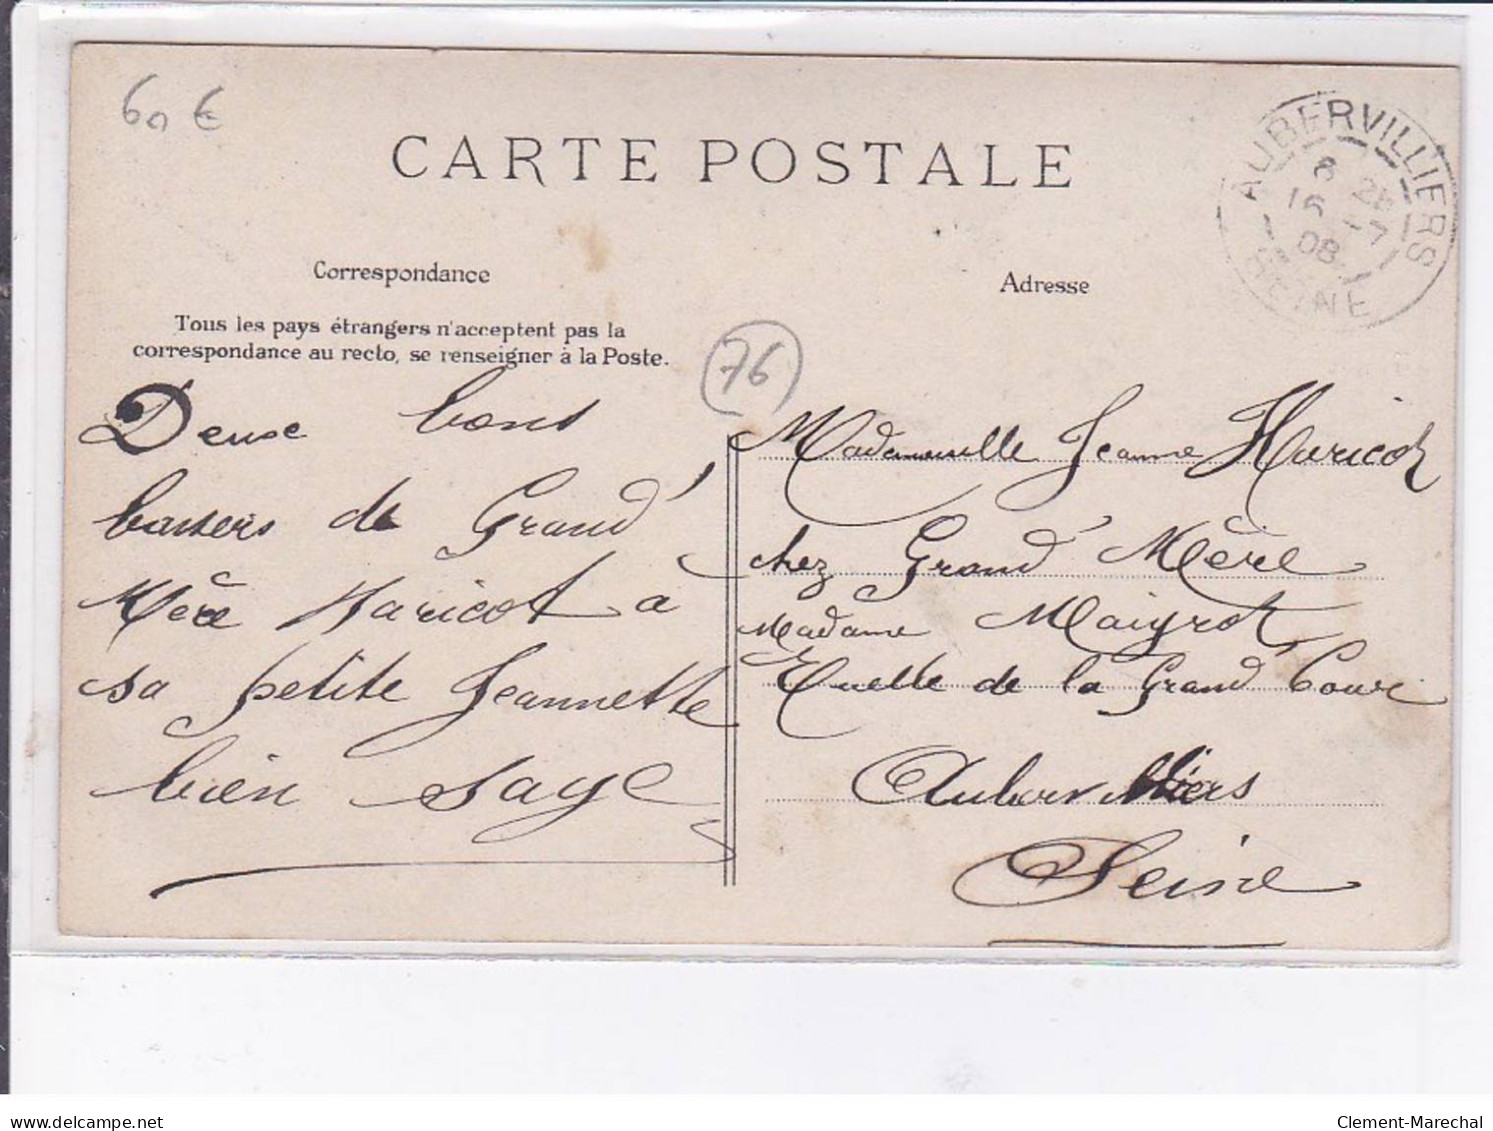 60 €
CARTE POSTALE
AUBERVILLIERS
16 -7
08
SEINE
Correspondance
Adresse
Tous les pays étrangers n'acceptent pas la
correspondance au recto, se renseigner à la Poste.
76
Deuse bons
baisers de Grand'
Mère Haricot à
sa petite Jeannette
bien sage
Mademoiselle Jeanne Haricot
chez Grand' Mère
Madame Maigrot
Ruelle de la Grand Cour
Aubervilliers
Seine
www.delcampe.net
Clement-Marechal